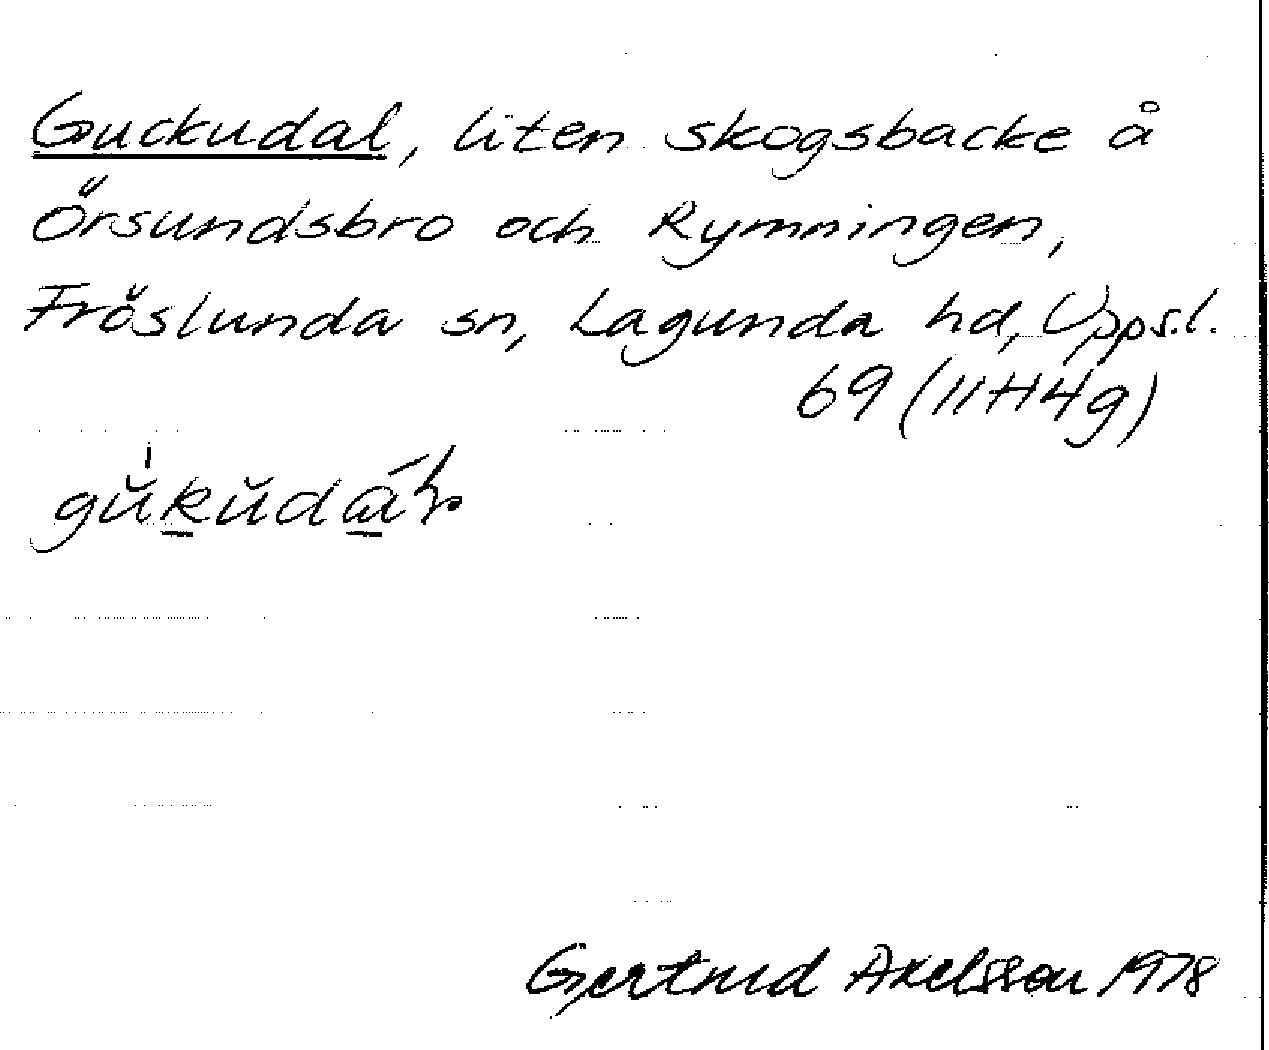 Guckudal, liten skogsbacke å
Örsundsbro och Rymningen,
Fröslunda sn, Lagunda hd, Uppsl.
69 (11H4g)
Gertrud Axelsson 1978